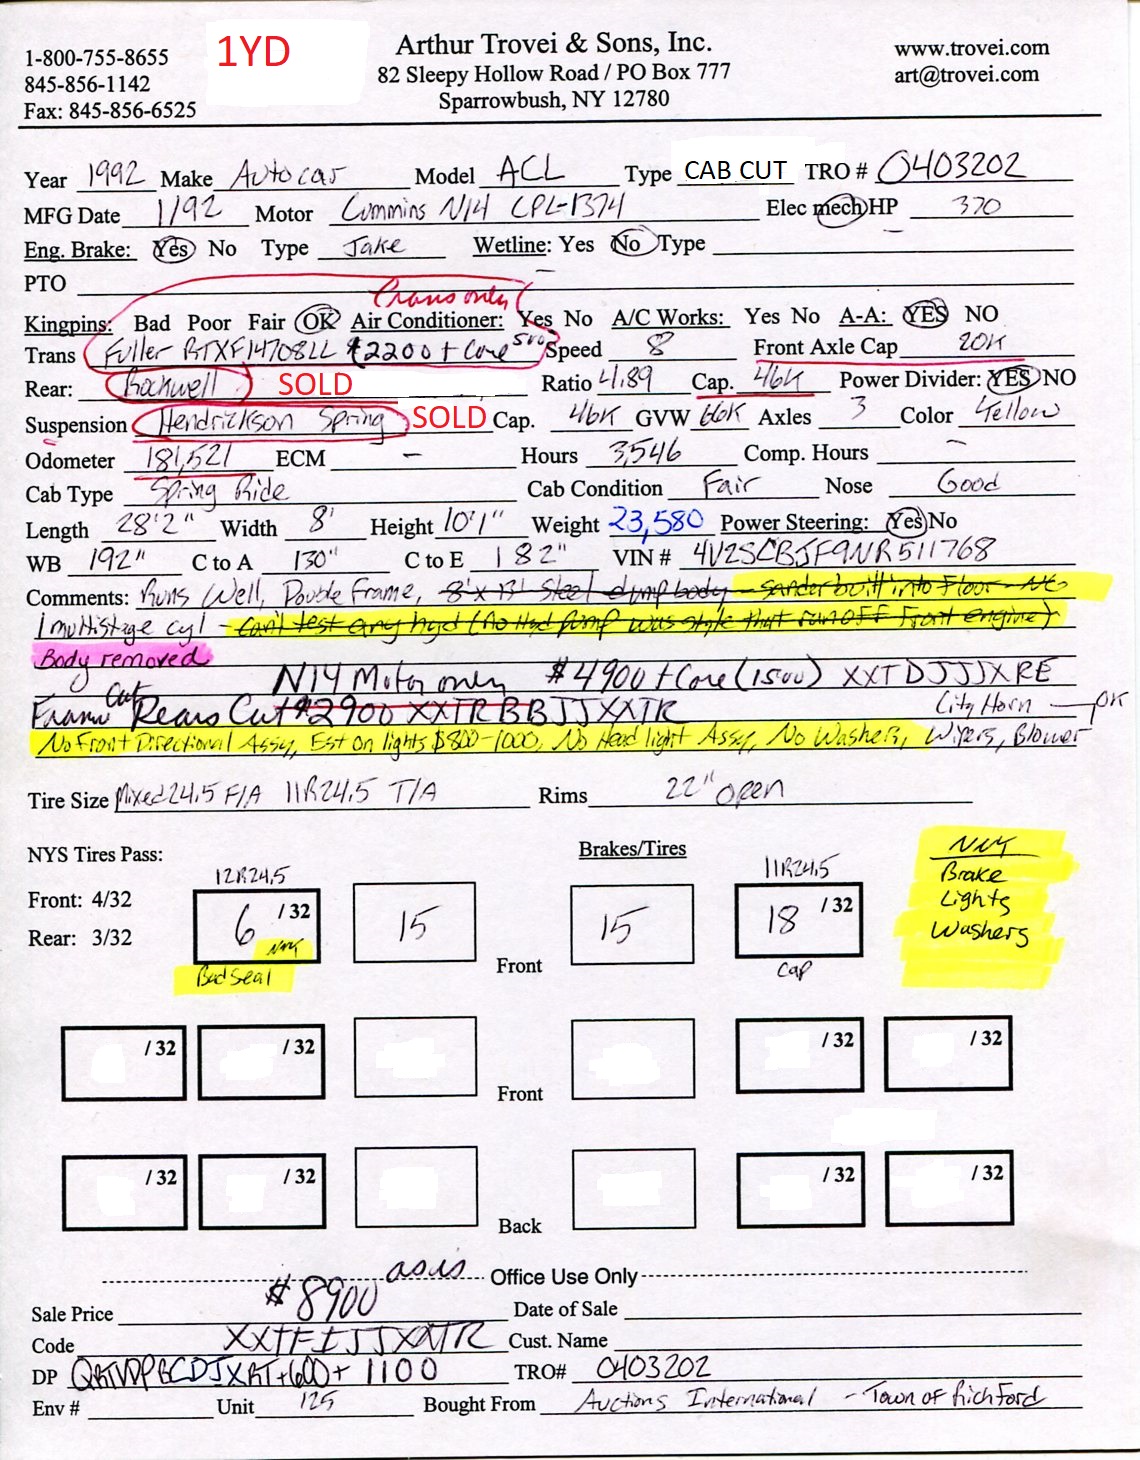 1-800-755-8655 1YD Arthur Trovei & Sons, Inc. www.trovei.com
845-856-1142 82 Sleepy Hollow Road / PO Box 777 art@trovei.com
Fax: 845-856-6525 Sparrowbush, NY 12780
Year 1992 Make Autocar Model ACL Type CAB CUT TRO # 0403202
MFG Date 1/92 Motor Cummins N14 CPL-1374 Elec mech HP 370
Eng. Brake: Yes No Type Jake Wetline: Yes No Type
PTO
Trans only
Kingpins: Bad Poor Fair OK Air Conditioner: Yes No A/C Works: Yes No A-A: YES NO
Trans Fuller RTXF14708LL $2200 + Core 500 Speed 8 Front Axle Cap 20K
Rear: Rockwell SOLD Ratio 4.89 Cap. 46K Power Divider: YES NO
Suspension Hendrickson Spring SOLD Cap. 46K GVW 66K Axles 3 Color Yellow
Odometer 181,521 ECM - Hours 3,546 Comp. Hours -
Cab Type Spring Ride Cab Condition Fair Nose Good
Length 28'2" Width 8' Height 10'1" Weight 23,580 Power Steering: Yes No
WB 192" C to A 130" C to E 182" VIN # 4V2SCBJF9NR511768
Comments: Runs Well, Double Frame, 8' x 13' Steel dump body - sander built into Floor - NC
1 multistage cyl - Can't test any hyd (No Hyd Pump was style that run off Front engine)
Body removed
N14 Motor only $4900 + Core (1500) XXTDJJJXRE
Frame Cut Rears Cut $2900 XXTRBBJJXXTR City Horn - OK
No Front Directional Assy, Est on lights $800-1000, No Head light Assy, No Washers, Wipers, Blower
Tire Size Mixed 24.5 F/A 11R24.5 T/A Rims 22" open
NYS Tires Pass: Brakes/Tires
12R24.5 11R24.5
Front: 4/32 6 /32 15 15 18 /32
Rear: 3/32
Front
Bad Seal Cap
Brake
Lights
Washers
/32 /32 /32 /32
Front
/32 /32 /32 /32
Back
as is Office Use Only
Sale Price $8900 Date of Sale
Code XXTFIJJXXTR Cust. Name
DP +600+ 1100 TRO# 0403202
Env # Unit 125 Bought From Auctions International - Town of Richford